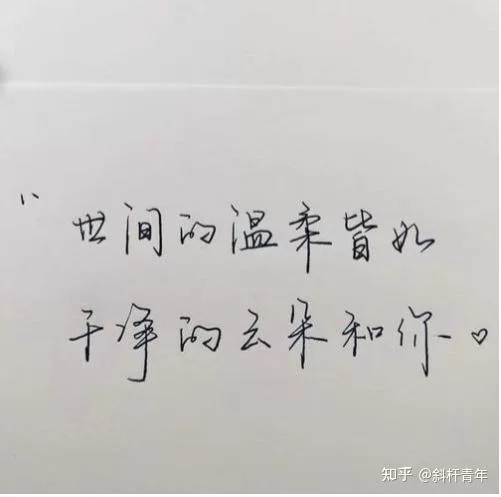 “世间的温柔皆如
干净的云朵和你。♡
知乎 @斜杆青年